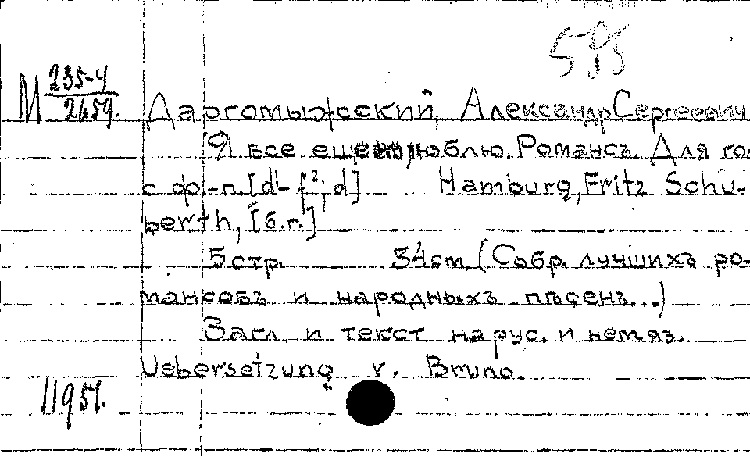 595
М 235-4
2459.
Даргомыжский Александр Сергеевич
Я все еще люблю. Романсъ. Для го-
с ф-п. [d¹-f²; d] Hamburg, Fritz Schu-
berth, [б.г.]
5 стр. 34 см (Собр. лучшихъ ро-
мансовъ и народныхъ пѣсенъ...)
Загл. и текст на рус. и нем. яз.
Uebersetzung v. Bruno.